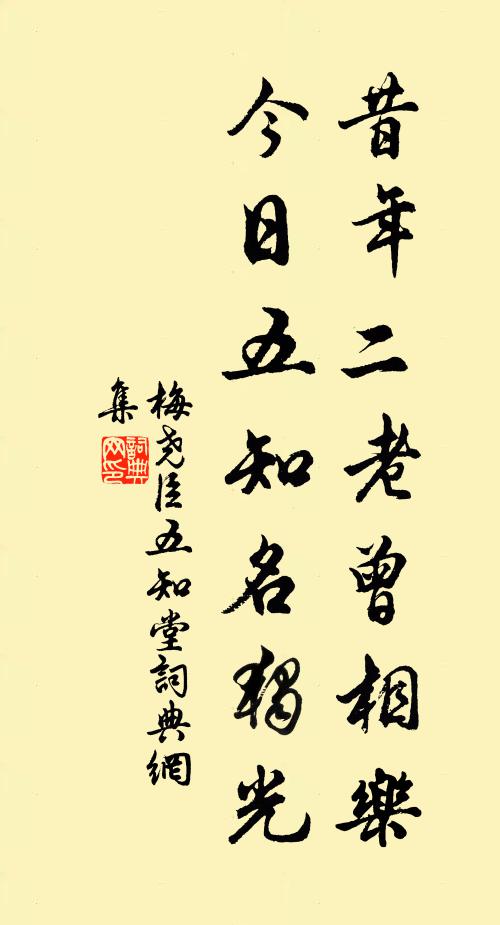 昔年二老曾相樂
今日五知名獨光
梅堯臣五知堂詞典網
集
詞典網印